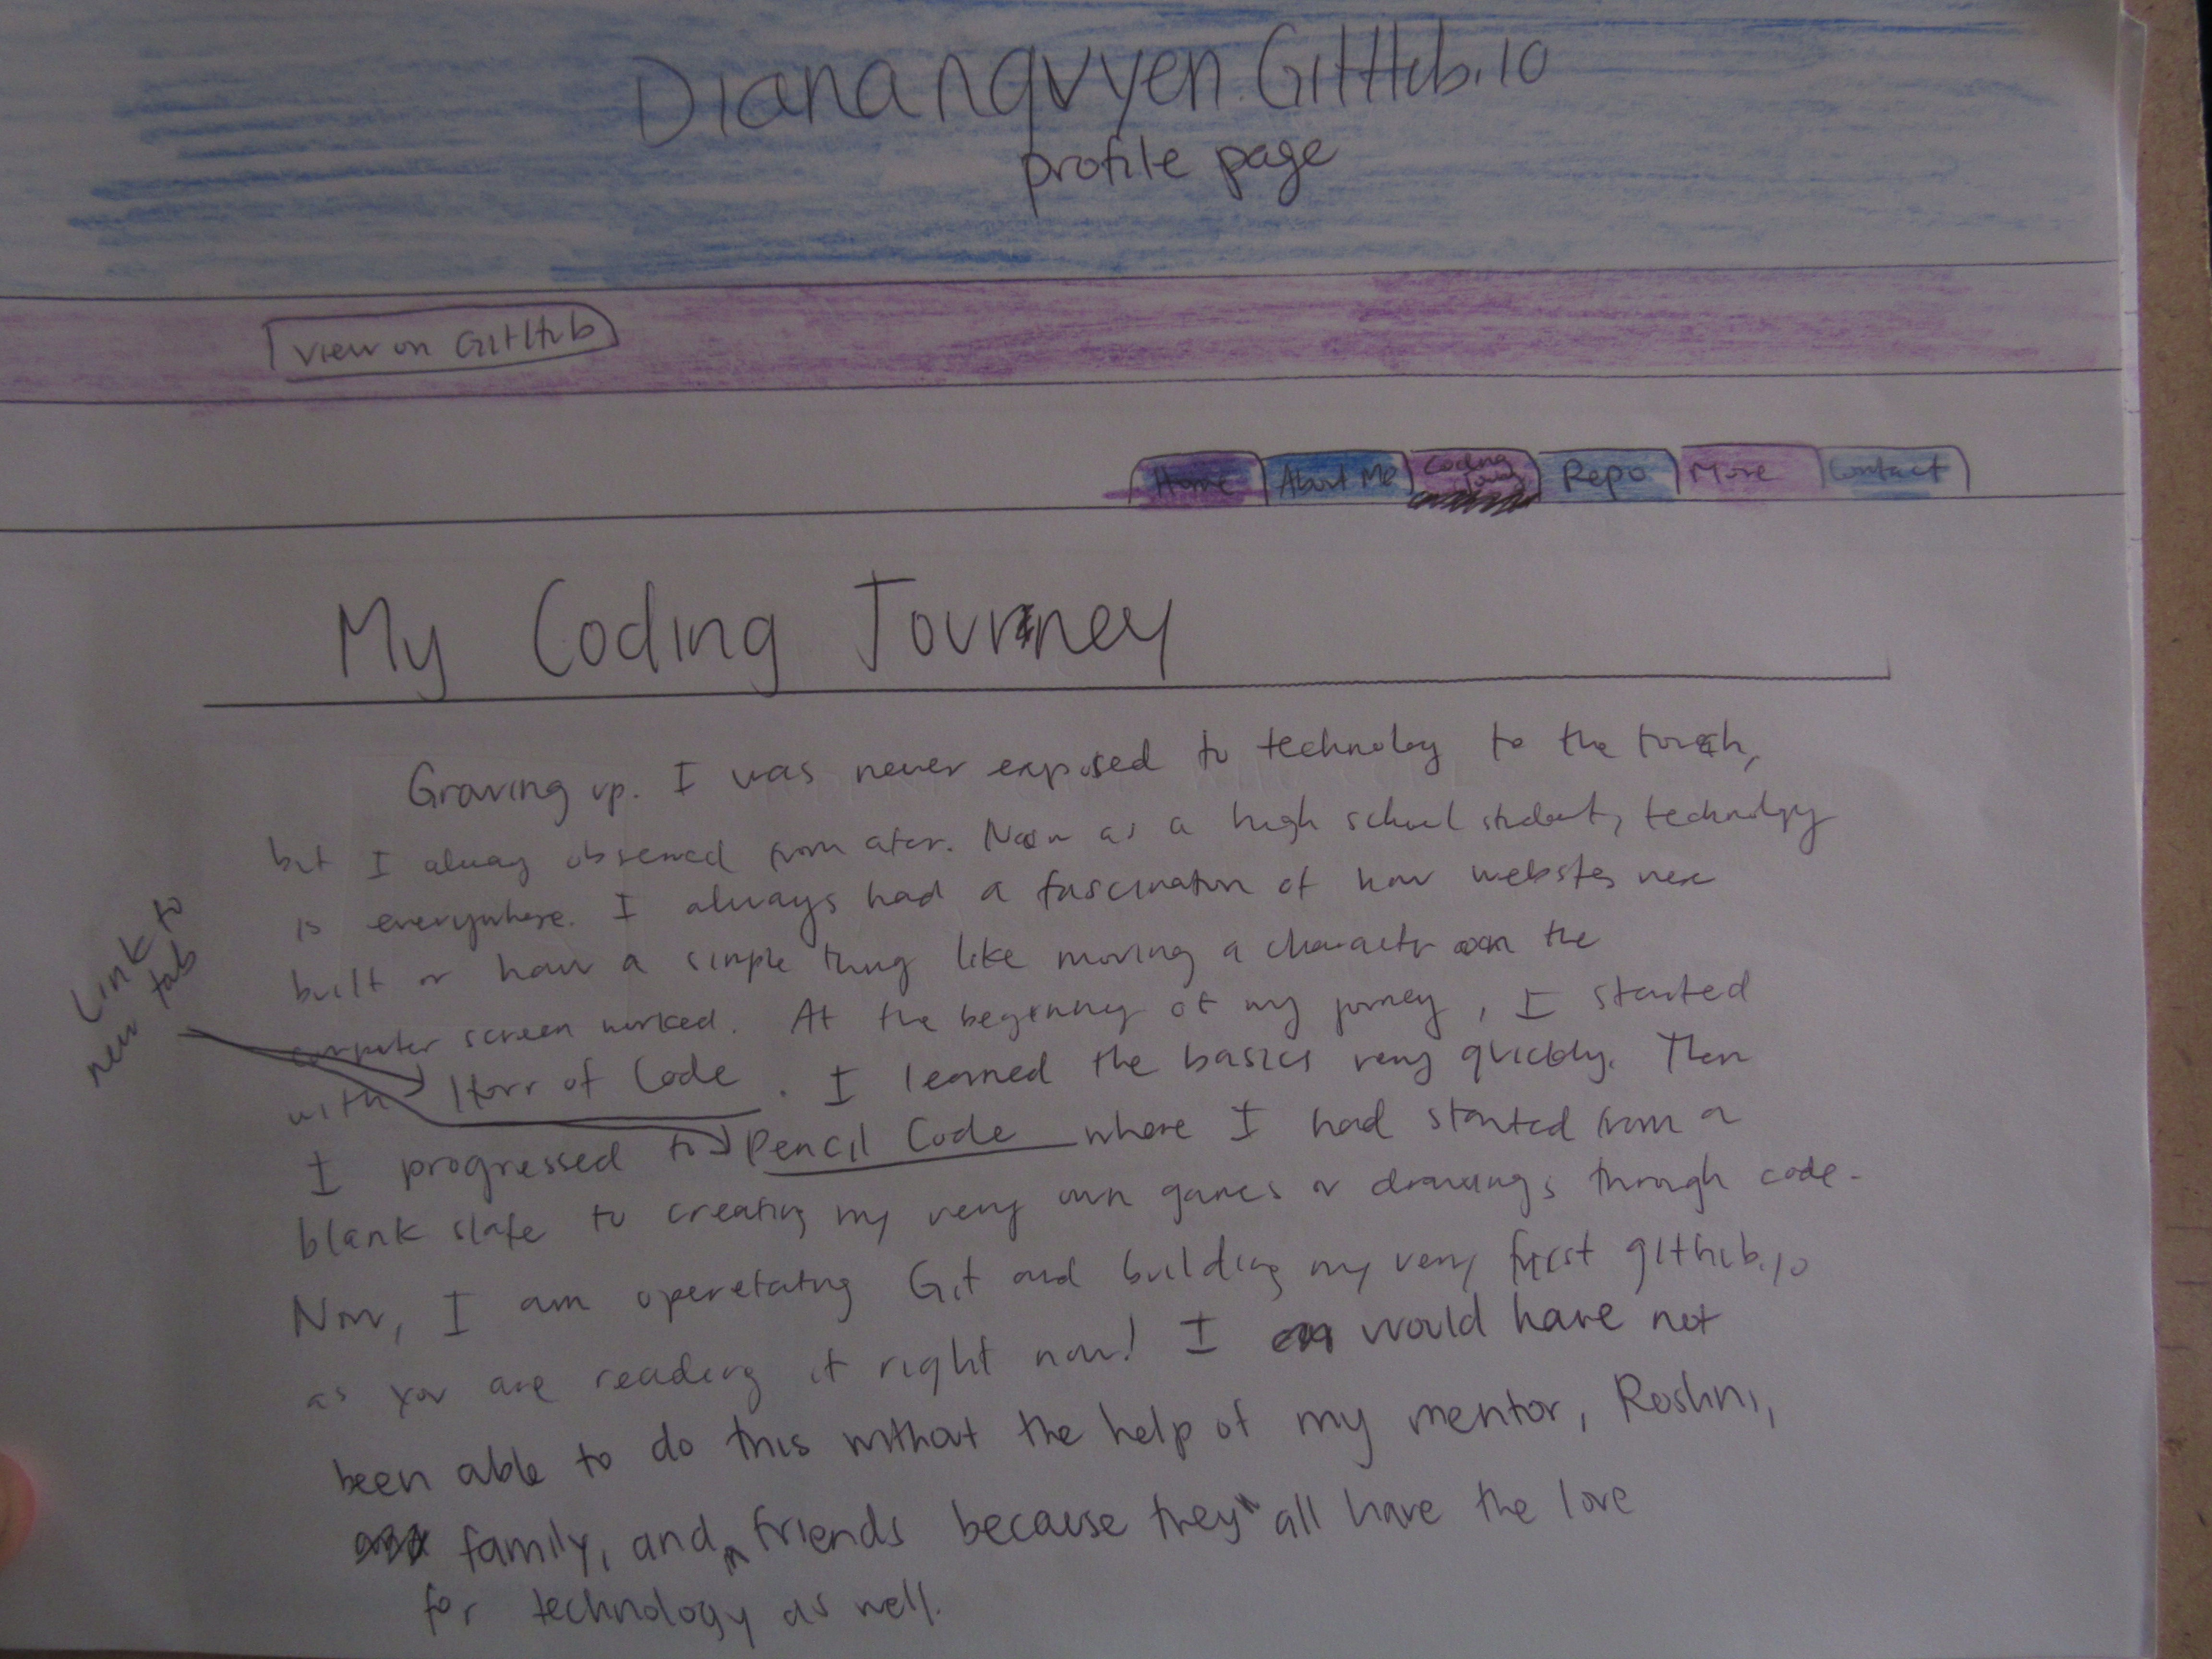 Diananguyen.GitHub.io
profile page
View on GitHub
Home About Me Coding Repo More Contact
My Coding Journey
Growing up. I was never exposed to technology to the touch,
but I alway observed from afar. Now as a high school student, technology
is everywhere. I always had a fascination of how websites were
built or how a simple thing like moving a character on the
computer screen worked. At the beginning of my jorney, I started
with Hour of Code. I learned the basics very quickly. Then
I progressed to Pencil Code where I had started from a
blank slate to creating my very own games or drawings through code.
Now, I am operetating Git and building my very first github.io
as you are reading it right now! I would have not
been able to do this without the help of my mentor, Roshni,
family, and friends because they all have the love
for technology as well.
Link to
new tab